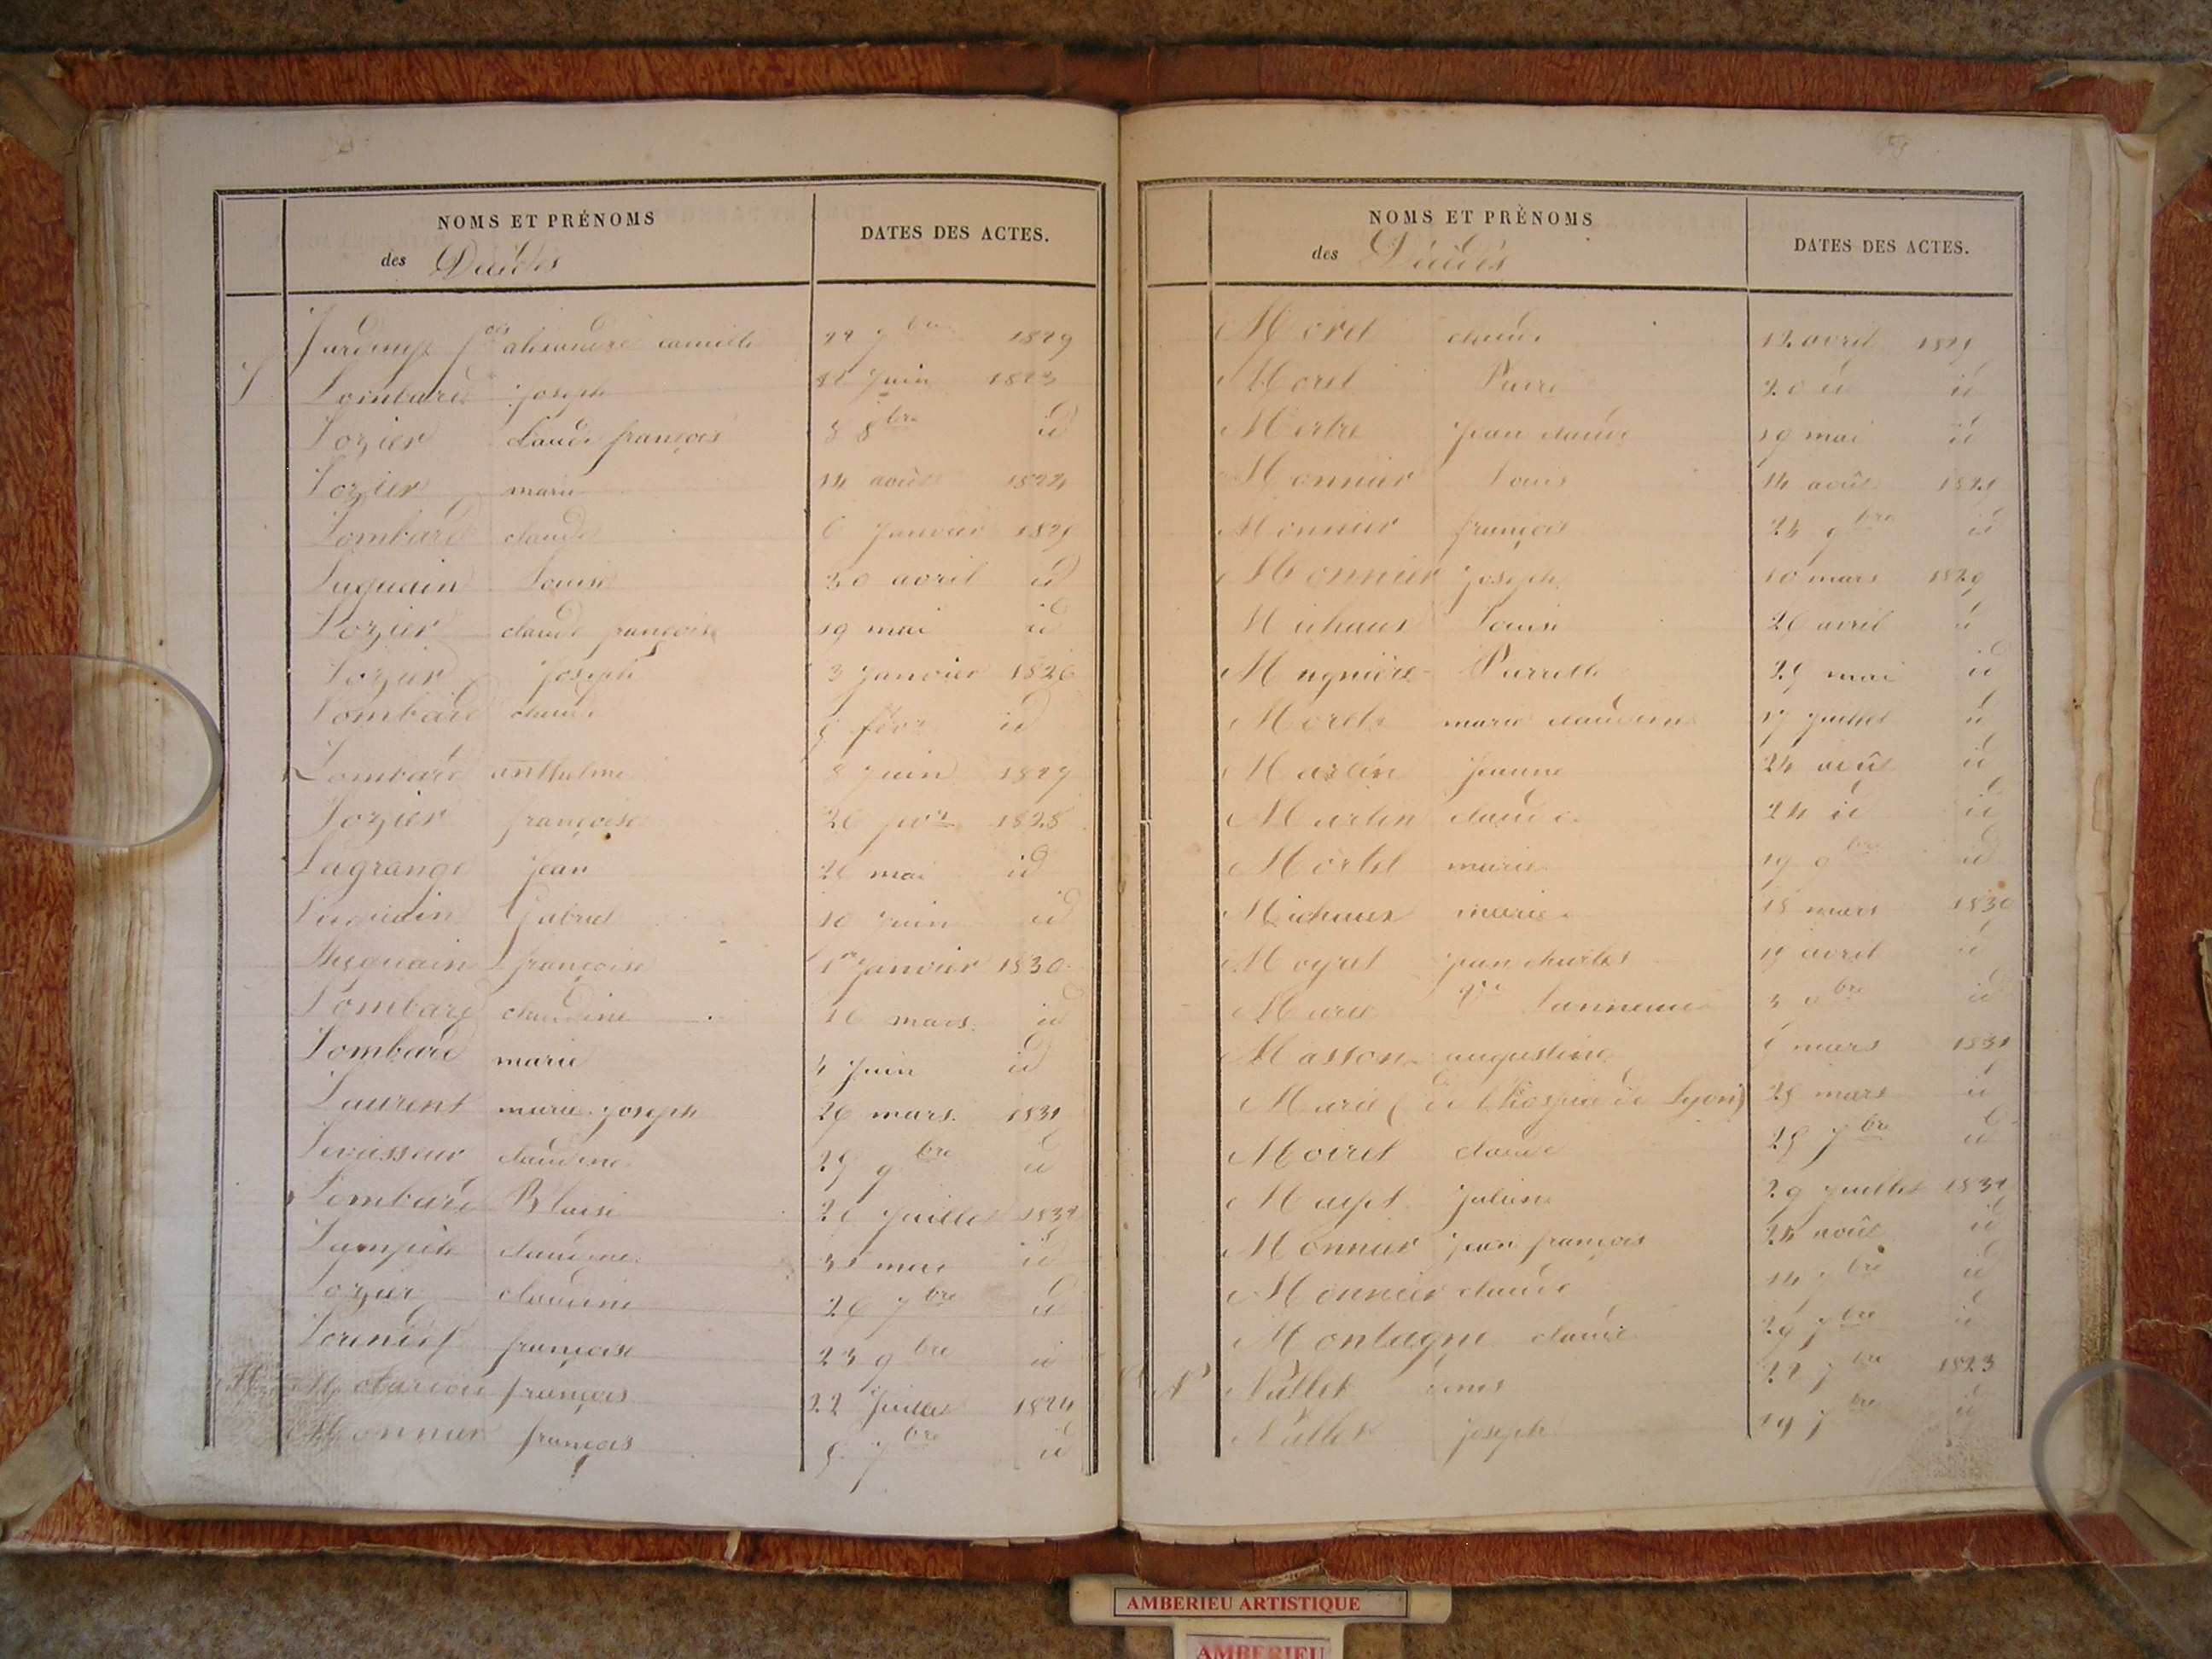 NOMS ET PRÉNOMS
des Décédés
DATES DES ACTES.
alexandre camille 22 9bre 1829
L Lombard joseph 12 Juin 1823
Lozier Claude françois 8 8bre id
Lozier marie 14 août 1824
Lombard claude 6 Janvier 1825
Luquain Louise 30 avril id
Lozier claude françoise 19 mai id
Lozier Joseph 3 Janvier 1826
Lombard claude 5 févr id
Lombard anthelme 8 Juin 1827
Lozier françoise 26 fevr 1828
Lagrange Jean 26 mai id
Luquain Gabriel 10 Juin id
Luquain françoise 1er Janvier 1830
Lombard claudine 16 mars id
Lombard marie 4 Juin id
Laurent marie joseph 26 mars 1831
Levasseur claudine 25 9bre id
Lombard Blaise 20 Juillet 1832
claudine 31 mai id
Lozier claudine 26 7bre id
françoise 23 9bre id
M françois 22 Juillet 1824
Monnier françois 5 7bre id
NOMS ET PRÉNOMS
des Décédés
DATES DES ACTES.
Morel claude 12 avril 1825
Morel Pierre 20 id id
Jean claude 19 mai id
Monnier Louis 14 août 1828
Monnier françois 24 9bre id
Monnier Joseph 10 mars 1829
Michaud Louise 26 avril id
Mugnière Pierrette 25 mai id
Morel marie claudine 17 juillet id
Martin Jeanne 24 août id
Martin claude 24 id id
Mortel marie 19 bre id
Michaux marie 15 mars 1830
Moyat jean charles 15 avril id
Marie 3 bre id
Masson augustine 6 mars 1831
Marie (de l'hospice de Lyon) 25 mars id
Moirel claude 25 7bre id
julien 29 juillet 1832
Monnier jean françois 24 août id
Monnier claude 14 bre id
Montagne claude 29 7bre id
N Nallet denis 22 7bre 1823
Nallet joseph 19 7bre id
AMBERIEU ARTISTIQUE
AMBERIEU